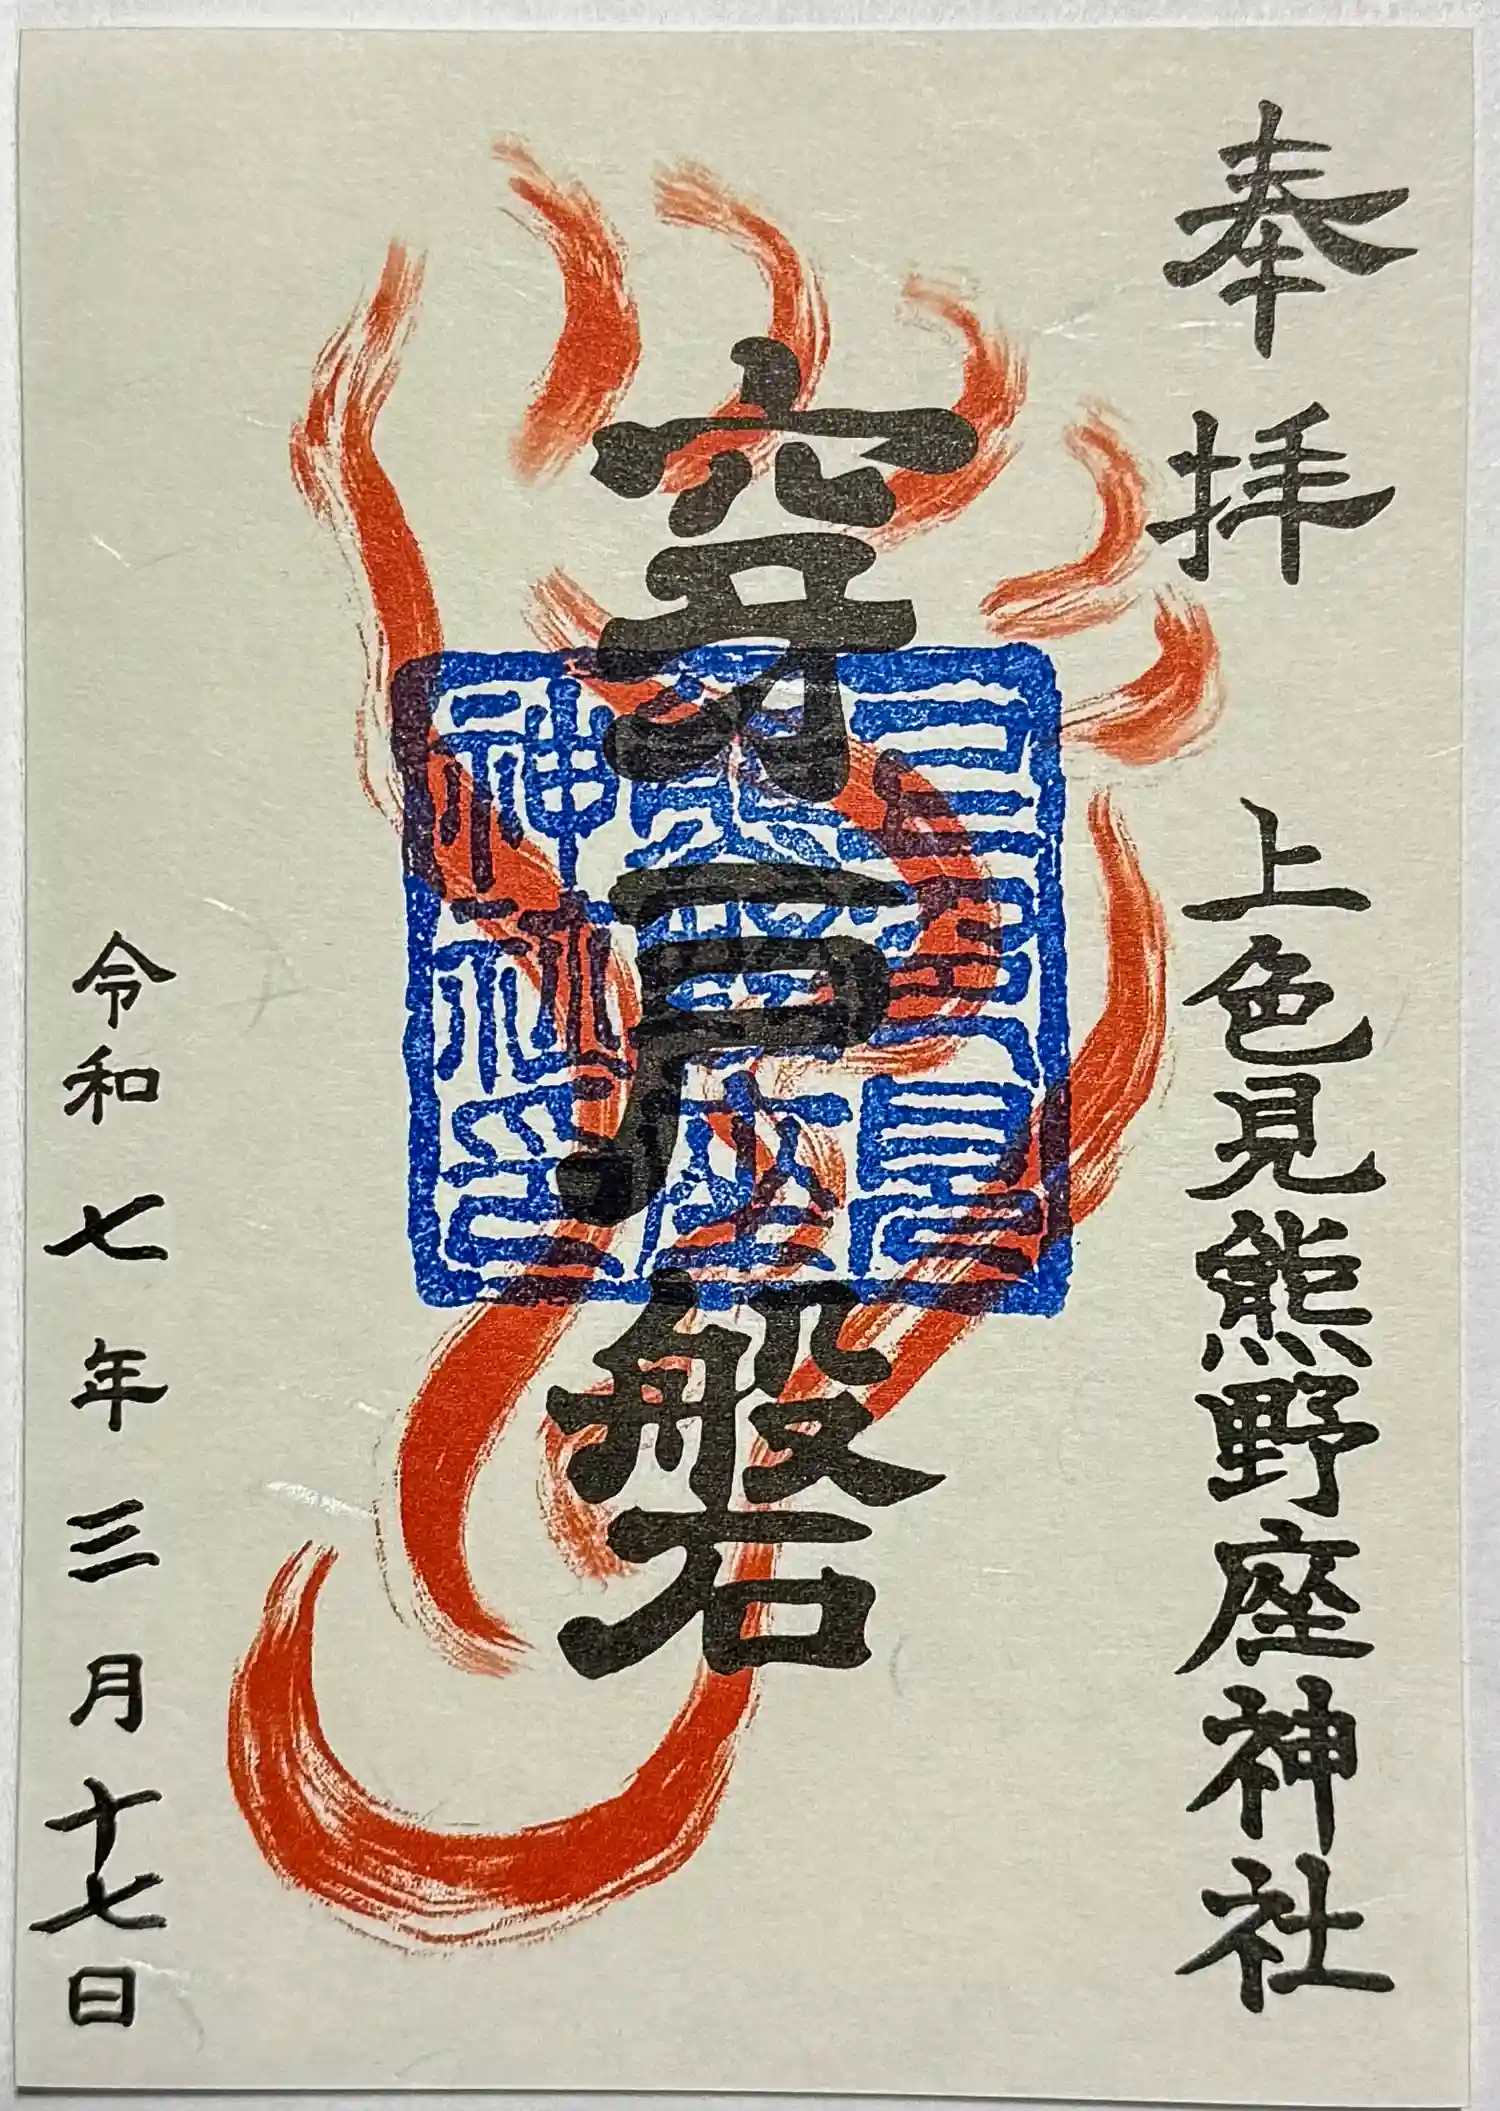 奉拝
上色見熊野座神社
穿戸磐
上色見熊野座神社印
令和七年三月十七日